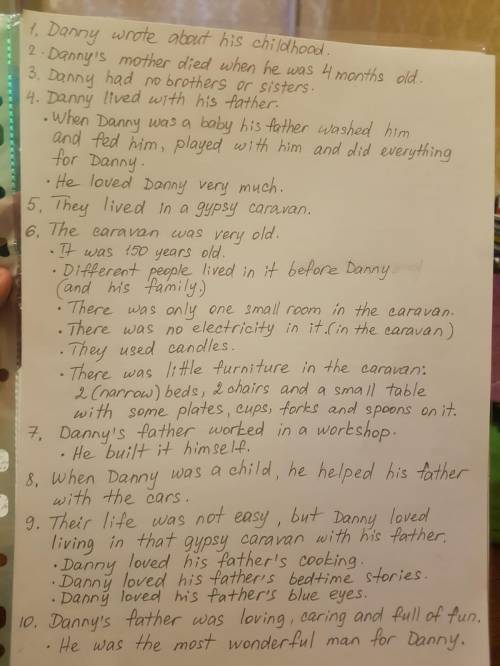 1. Danny wrote about his childhood.
2. Danny's mother died when he was 4 months old.
3. Danny had no brothers or sisters.
4. Danny lived with his father.
• When Danny was a baby his father washed him
and fed him, played with him and did everything
for Danny.
• He loved Danny very much.
5. They lived in a gypsy caravan.
6. The caravan was very old.
• It was 150 years old.
• Different people lived in it before Danny
(and his family.)
• There was only one small room in the caravan.
• There was no electricity in it. (in the caravan)
• They used candles.
• There was little furniture in the caravan:
2 (narrow) beds, 2 chairs and a small table
with some plates, cups, forks and spoons on it.
7. Danny's father worked in a workshop.
• He built it himself.
8. When Danny was a child, he helped his father
with the cars.
9. Their life was not easy, but Danny loved
living in that gypsy caravan with his father.
• Danny loved his father's cooking.
• Danny loved his father's bedtime stories.
• Danny loved his father's blue eyes.
10. Danny's father was loving, caring and full of fun.
• He was the most wonderful man for Danny.